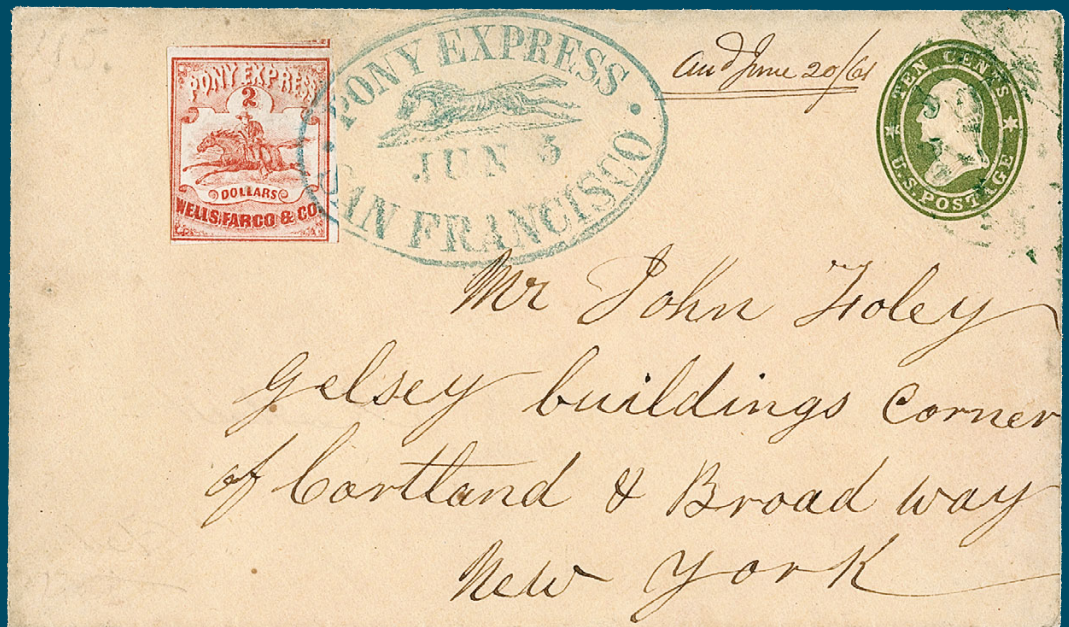 115.
PONY EXPRESS
2
DOLLARS
WELLS, FARGO & CO.
PONY EXPRESS
JUN 5
SAN FRANCISCO
June 20/61
TEN CENTS
U.S. POSTAGE
Mr John Foley
Gelsey buildings Corner
of Cortland & Broad way
New York